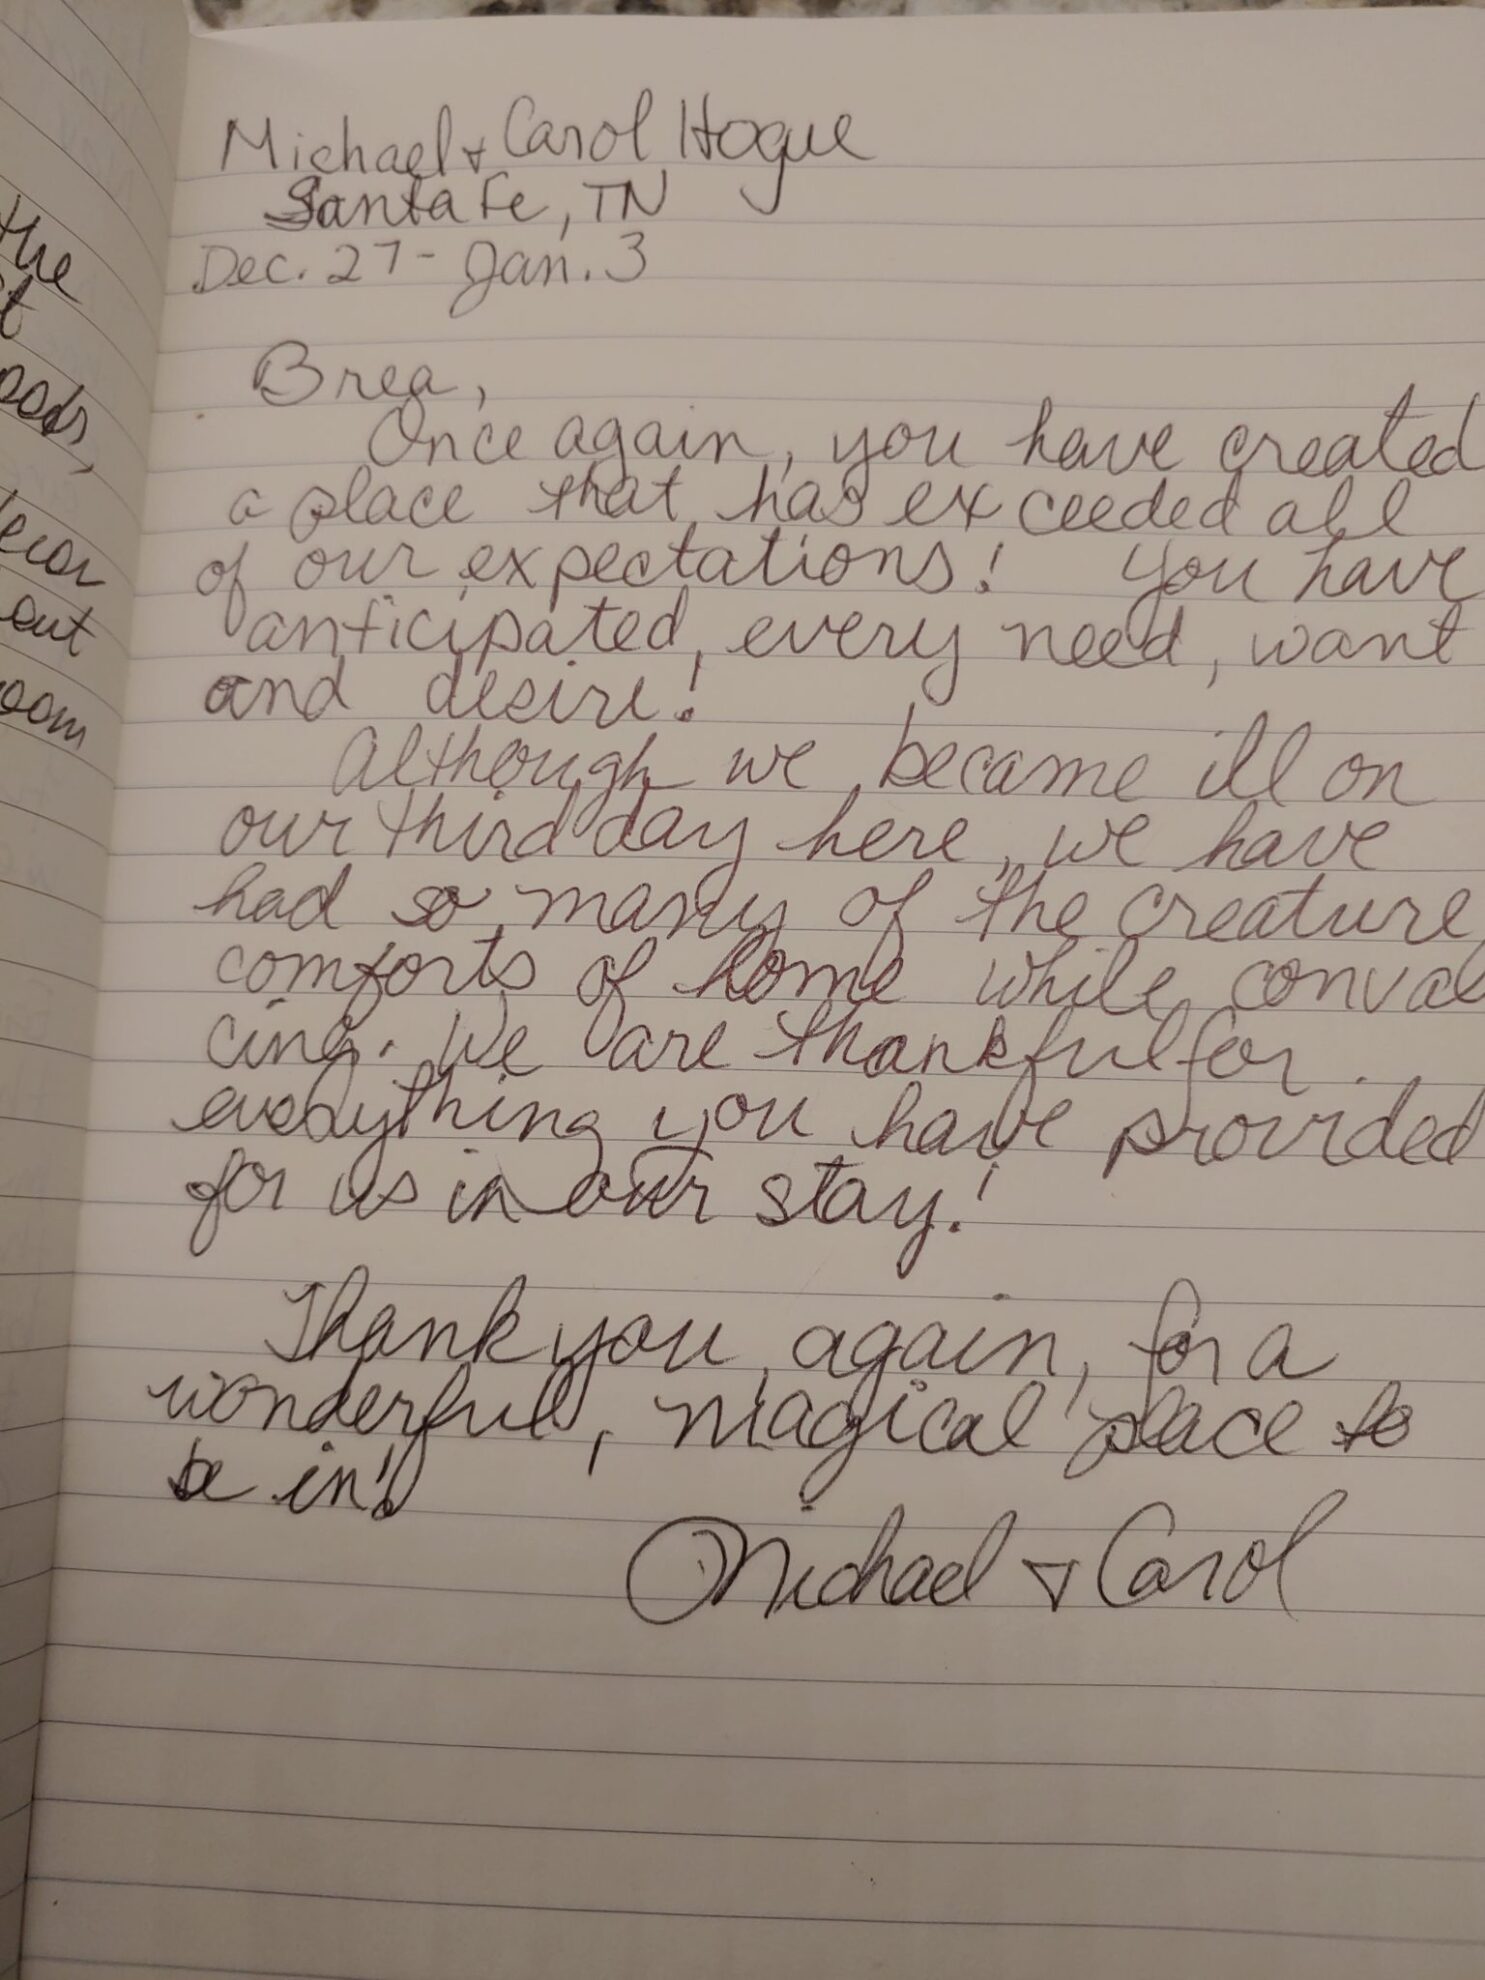 Michael & Carol Hogue
Santa Fe, TN
Dec. 27 - Jan. 3
Brea,
Once again, you have created
a place that has exceeded all
of our expectations! You have
anticipated every need, want
and desire!
Although we became ill on
our third day here, we have
had so many of the creature
comforts of home while conval
cing. We are thankful for
everything you have provided
for us in our stay!
Thank you, again, for a
wonderful, magical place to
be in!
Michael & Carol
the
out
oom